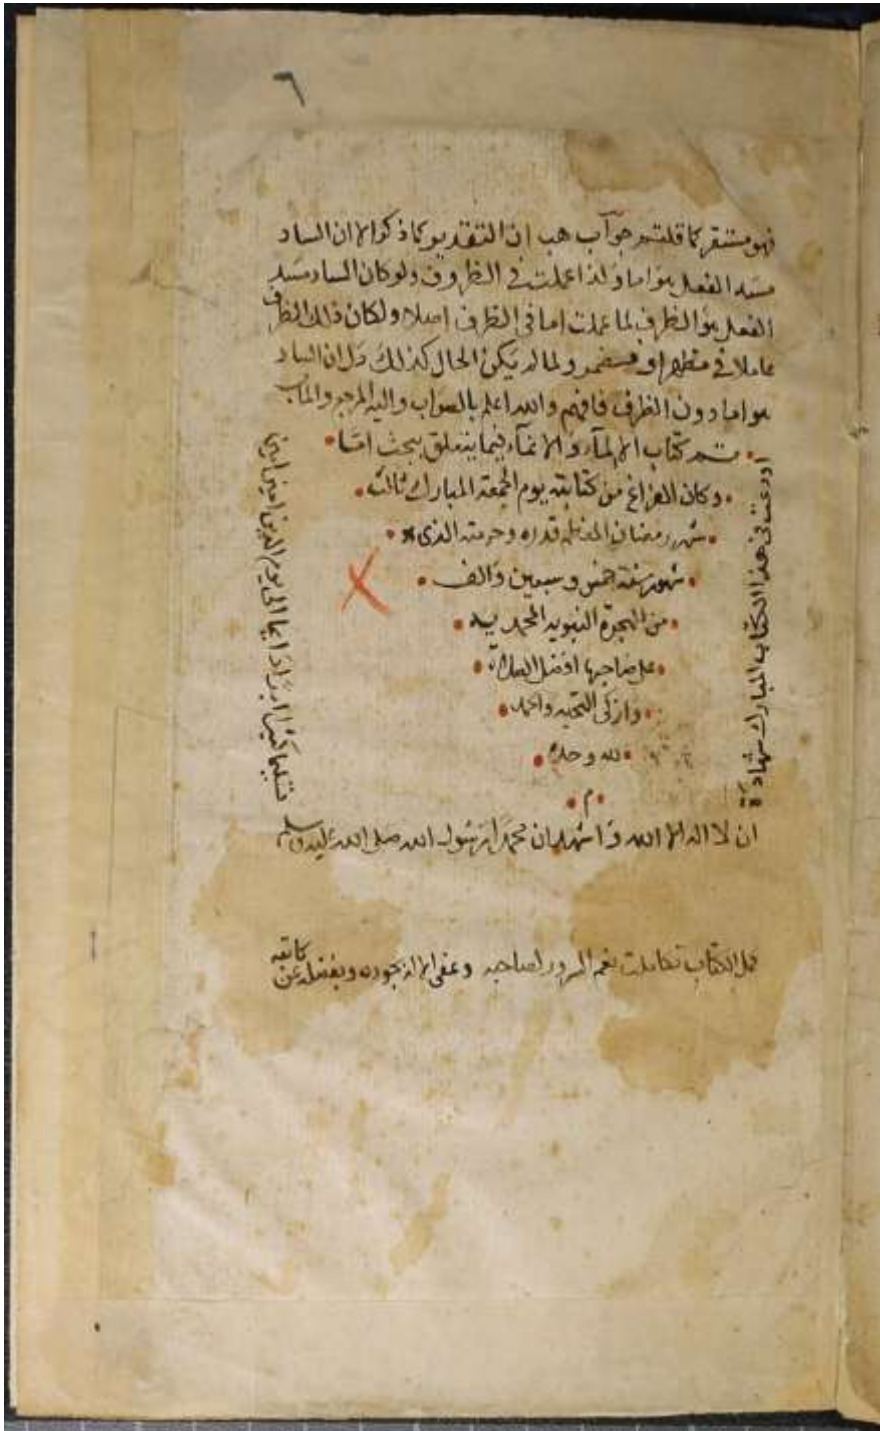 ٦
فهو مستقر كما قلتم جواب هب ان التقدير كما ذكر الا ان الساد
مسد الفعل هو اما ولذا عملت في الظروف ولو كان الساد مسد
الفعل هو الظرف لما عملت اما في الظرف اصلا ولكان ذلك الظرف
عاملا في مظهر او مضمر ولما لم يكن الحال كذلك دل ان الساد
هو اما دون الظرف فافهم والله اعلم بالصواب واليه المرجع والمآب
تم كتاب فيما يتعلق ببحث اما
وكان الفراغ من كتابته يوم الجمعة المبارك ثالث
شهر رمضان المعظم قدره وحرمته الذي
شهور سنة خمس وسبعين والف
من الهجرة النبويه المحمديه
على صاحبها افضل الصلاة
وازكى التحيه والحمد
لله وحده
م
اودعت في هذا الكتاب المبارك شهادة
ان لا اله الا الله واشهد ان محمدا رسول الله صلى الله عليه وسلم
تسليما كثيرا ابدا دايما الى يوم الدين امين امين
كمل الكتاب تكاملت نعم السرور لصاحبه وعفى الاله بجوده وبفضله عن كاتبه